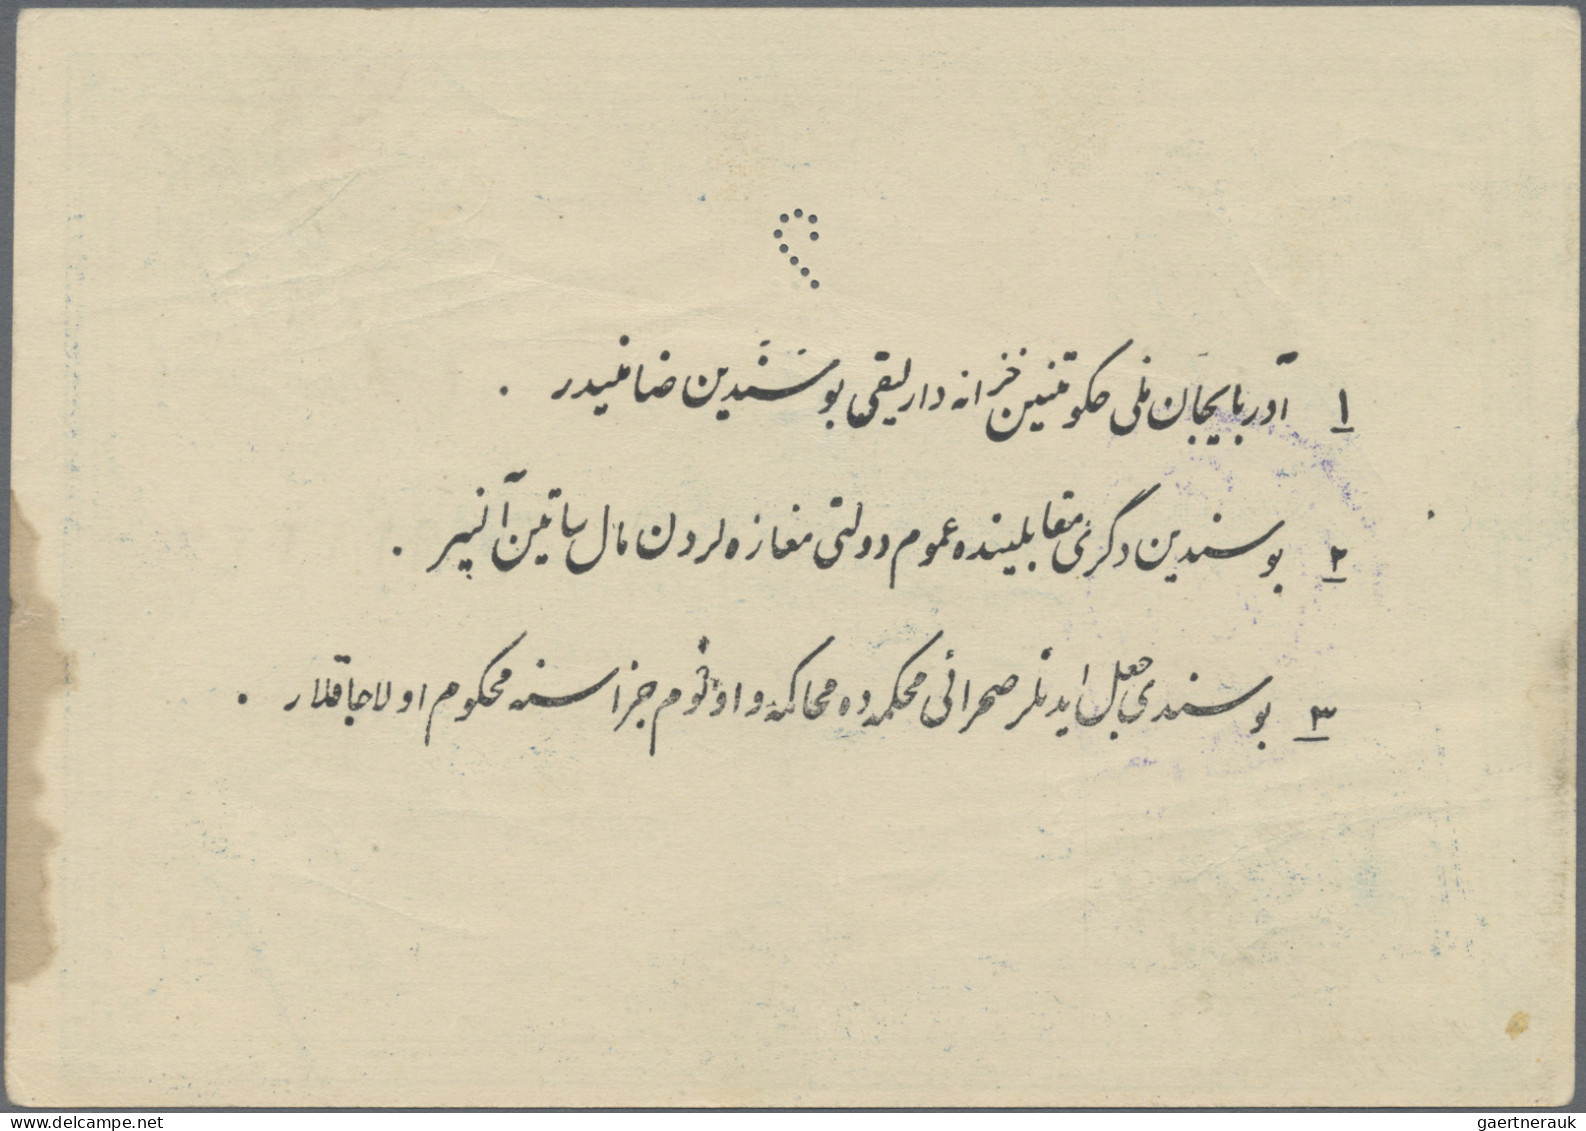 ۱ آذربایجان ملی حکومتنین خزانه دارلیقی بو سَنَدین ضامنیدر .
۲ بو سندین دگری مقابلینده عموم دولتی مغازه لردن مال ساتین آلنیر .
۳ بو سندی جعل ایدنلر صحرائی محکمه ده محاکمه و اولوم جزاسنه محکوم اولاجاقلار .
www.delcampe.net
gaertnerauk